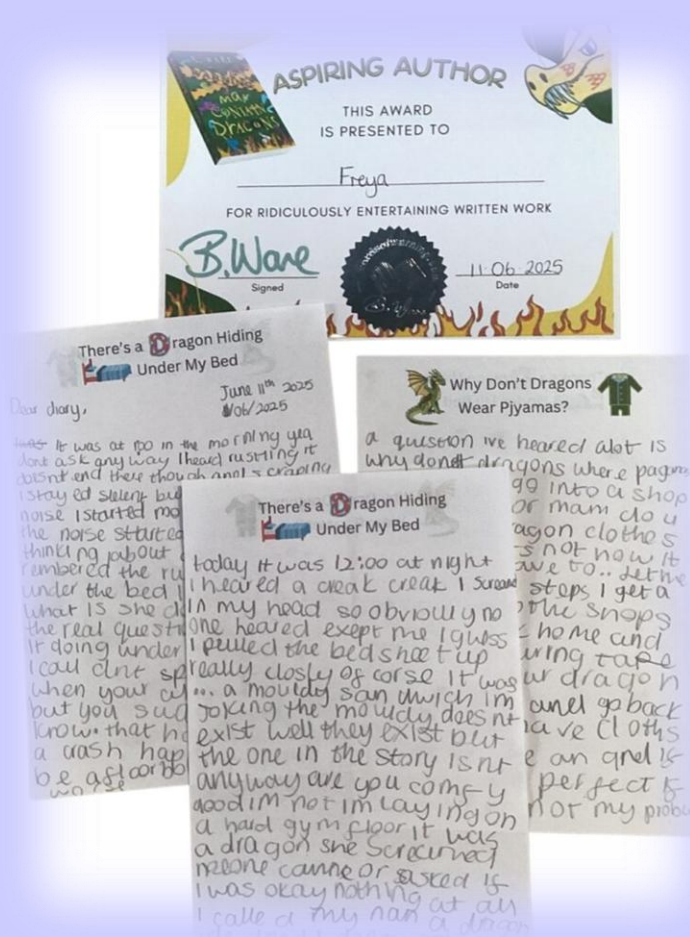 MAY CONTAIN DRAGONS
ASPIRING AUTHOR
THIS AWARD
IS PRESENTED TO
Freya
FOR RIDICULOUSLY ENTERTAINING WRITTEN WORK
B.Wane
Signed
11.06.2025
Date
There's a Dragon Hiding
Under My Bed
June 11th 2025
/06/2025
Dear diary,
It was at in the morning yea
dont ask any way I heard rustling it
doesnt end there though
I stayed
noise I started mo
the noise started
thinking about
rembered the ru
under the bed
what is she
the real questi
it doing under
I call
when your
but you sud
know. that h
a crash hap
be a floorbo
Why Don't Dragons
Wear Pjyamas?
a question ive heared alot is
why donet dragons where
go into a shop
or mam do u
ragon clothes
s not how it
ave to.. let me
steps I get a
the shops
home and
uring tape
ur dragon
and go back
have cloths
e an and if
perfect if
not my prob
There's a Dragon Hiding
Under My Bed
today it was 12:00 at night
I heared a creak creak I scream
in my head so obviously no
one heared exept me I guess
I pulled the bed sheet up
really closly of corse it was
... a mouldy sandwich im
Joking the mouldy does nt
exist well they exist but
the one in the story isnt
anyway are you comfy
good im not im laying on
a hard gym floor it was
a dragon she screamed
noone came or asked if
I was okay nothing at all
I called my nan a dragon